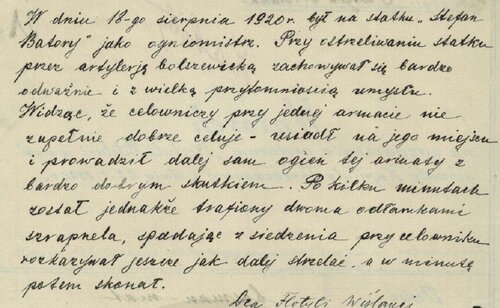 W dniu 18-go sierpnia 1920 r. był na statku „Stefan
Batory" jako ogniomistrz. Przy ostreliwaniu statku
przez artylerją bolszewicką zachowywał się bardzo
odważnie i z wielką przytomniością umysłu.
Widząc, że celowniczy przy jednej armacie nie
zupełnie dobrze celuje – usiadł na jego miejscu
i prowadził dalej sam ogień tej armaty z
bardzo dobrym skutkiem. Po kilku minutach
został jednakże trafiony dwoma odłamkami
szrapnela, spadając z siedzenia przy celowniku
rozkazywał jeszcze jak dalej strzelać, a w minutę
potem skonał.
Flotyli Wiślanej